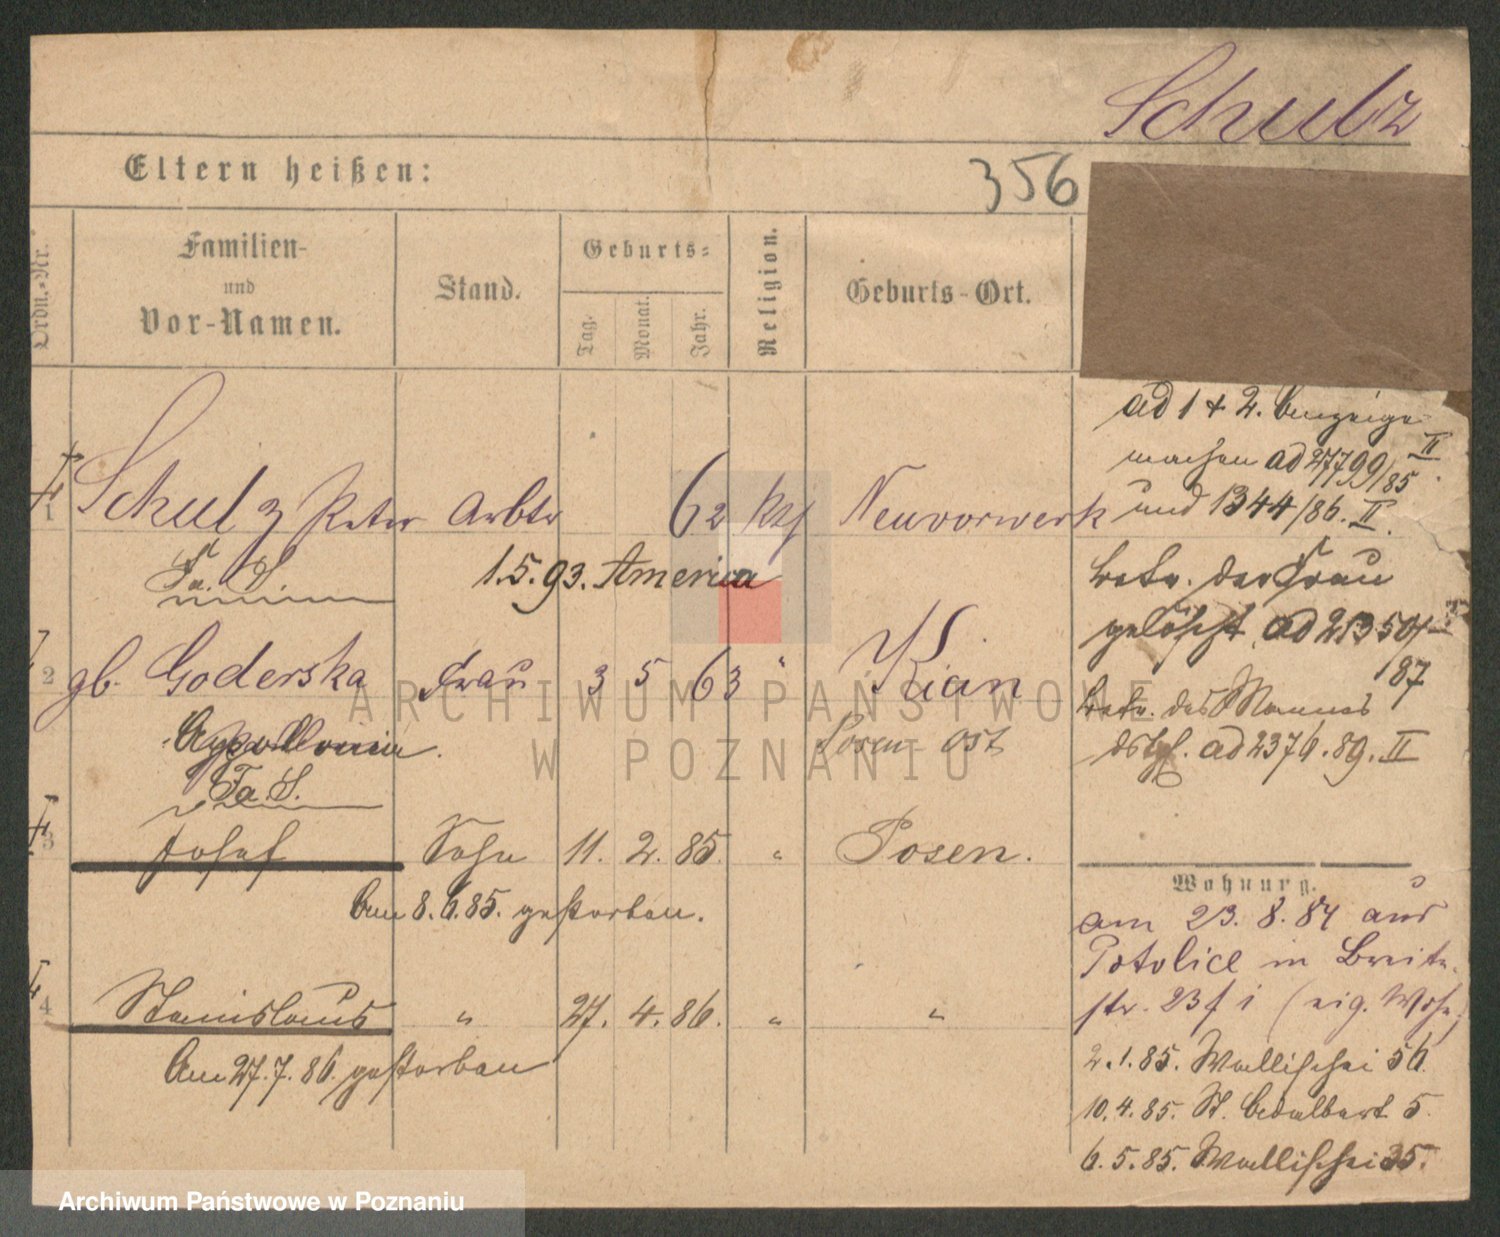 Schulz
Eltern heißen:
356
Ordn.-Nr.
Familien-
und
Vor-Namen.
Stand.
Geburts-
Tag.
Monat.
Jahr.
Religion.
Geburts-Ort.
ad 1 + 2.
machen ad 27799/85 II
und 1344/86. II.
1 Schulz Peter Arbtr 62 kath Neuvorwerk
Fa. S.
1.5.93. America
betr. der Frau
gelöscht ad 21350/
87
2 gb. Goderska Frau 3 5 63 " Kian
Appollonia.
Posen Ost
Fa. S.
betr. des Mannes
dsgl. ad 2376.89. II
3 Josef Sohn 11. 2. 85. " Posen.
Am 8.6.85. gestorben.
4 Stanislaus " 27. 4. 86. " "
Am 27.7.86. gestorben
Wohnung.
am 23.8.84 aus
Potolice in Breite-
str. 23 f i (eig. Wohn.)
2.1.85. Wallischei 56.
10.4.85. St. Adalbert 5.
6.5.85. Wallischei 35.
ARCHIWUM PAŃSTWOWE
W POZNANIU
Archiwum Państwowe w Poznaniu